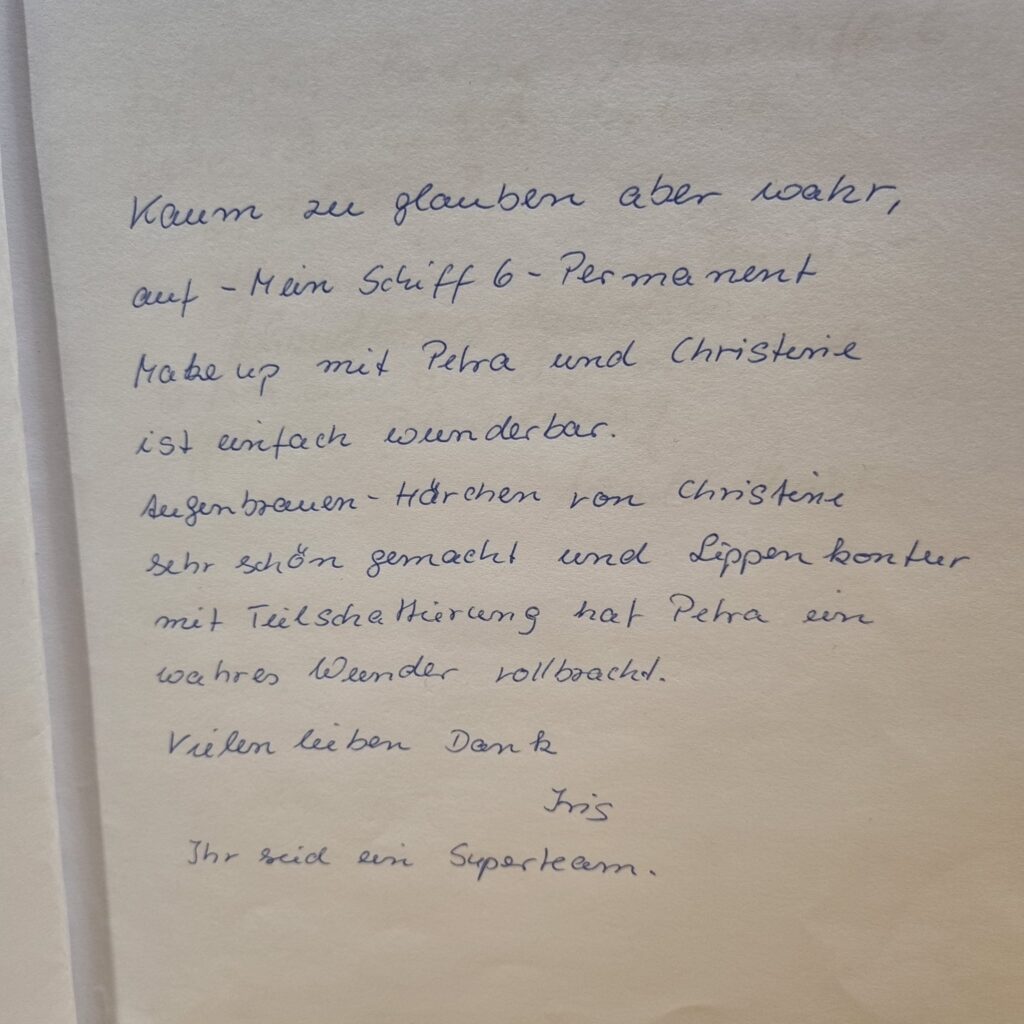 Kaum zu glauben aber wahr,
auf - Mein Schiff 6 - Permanent
Make up mit Petra und Christine
ist einfach wunderbar.
Augenbrauen - Härchen von Christine
sehr schön gemacht und Lippenkontur
mit Teilschattierung hat Petra ein
wahres Wunder vollbracht.
Vielen lieben Dank
Iris
Ihr seid ein Superteam.